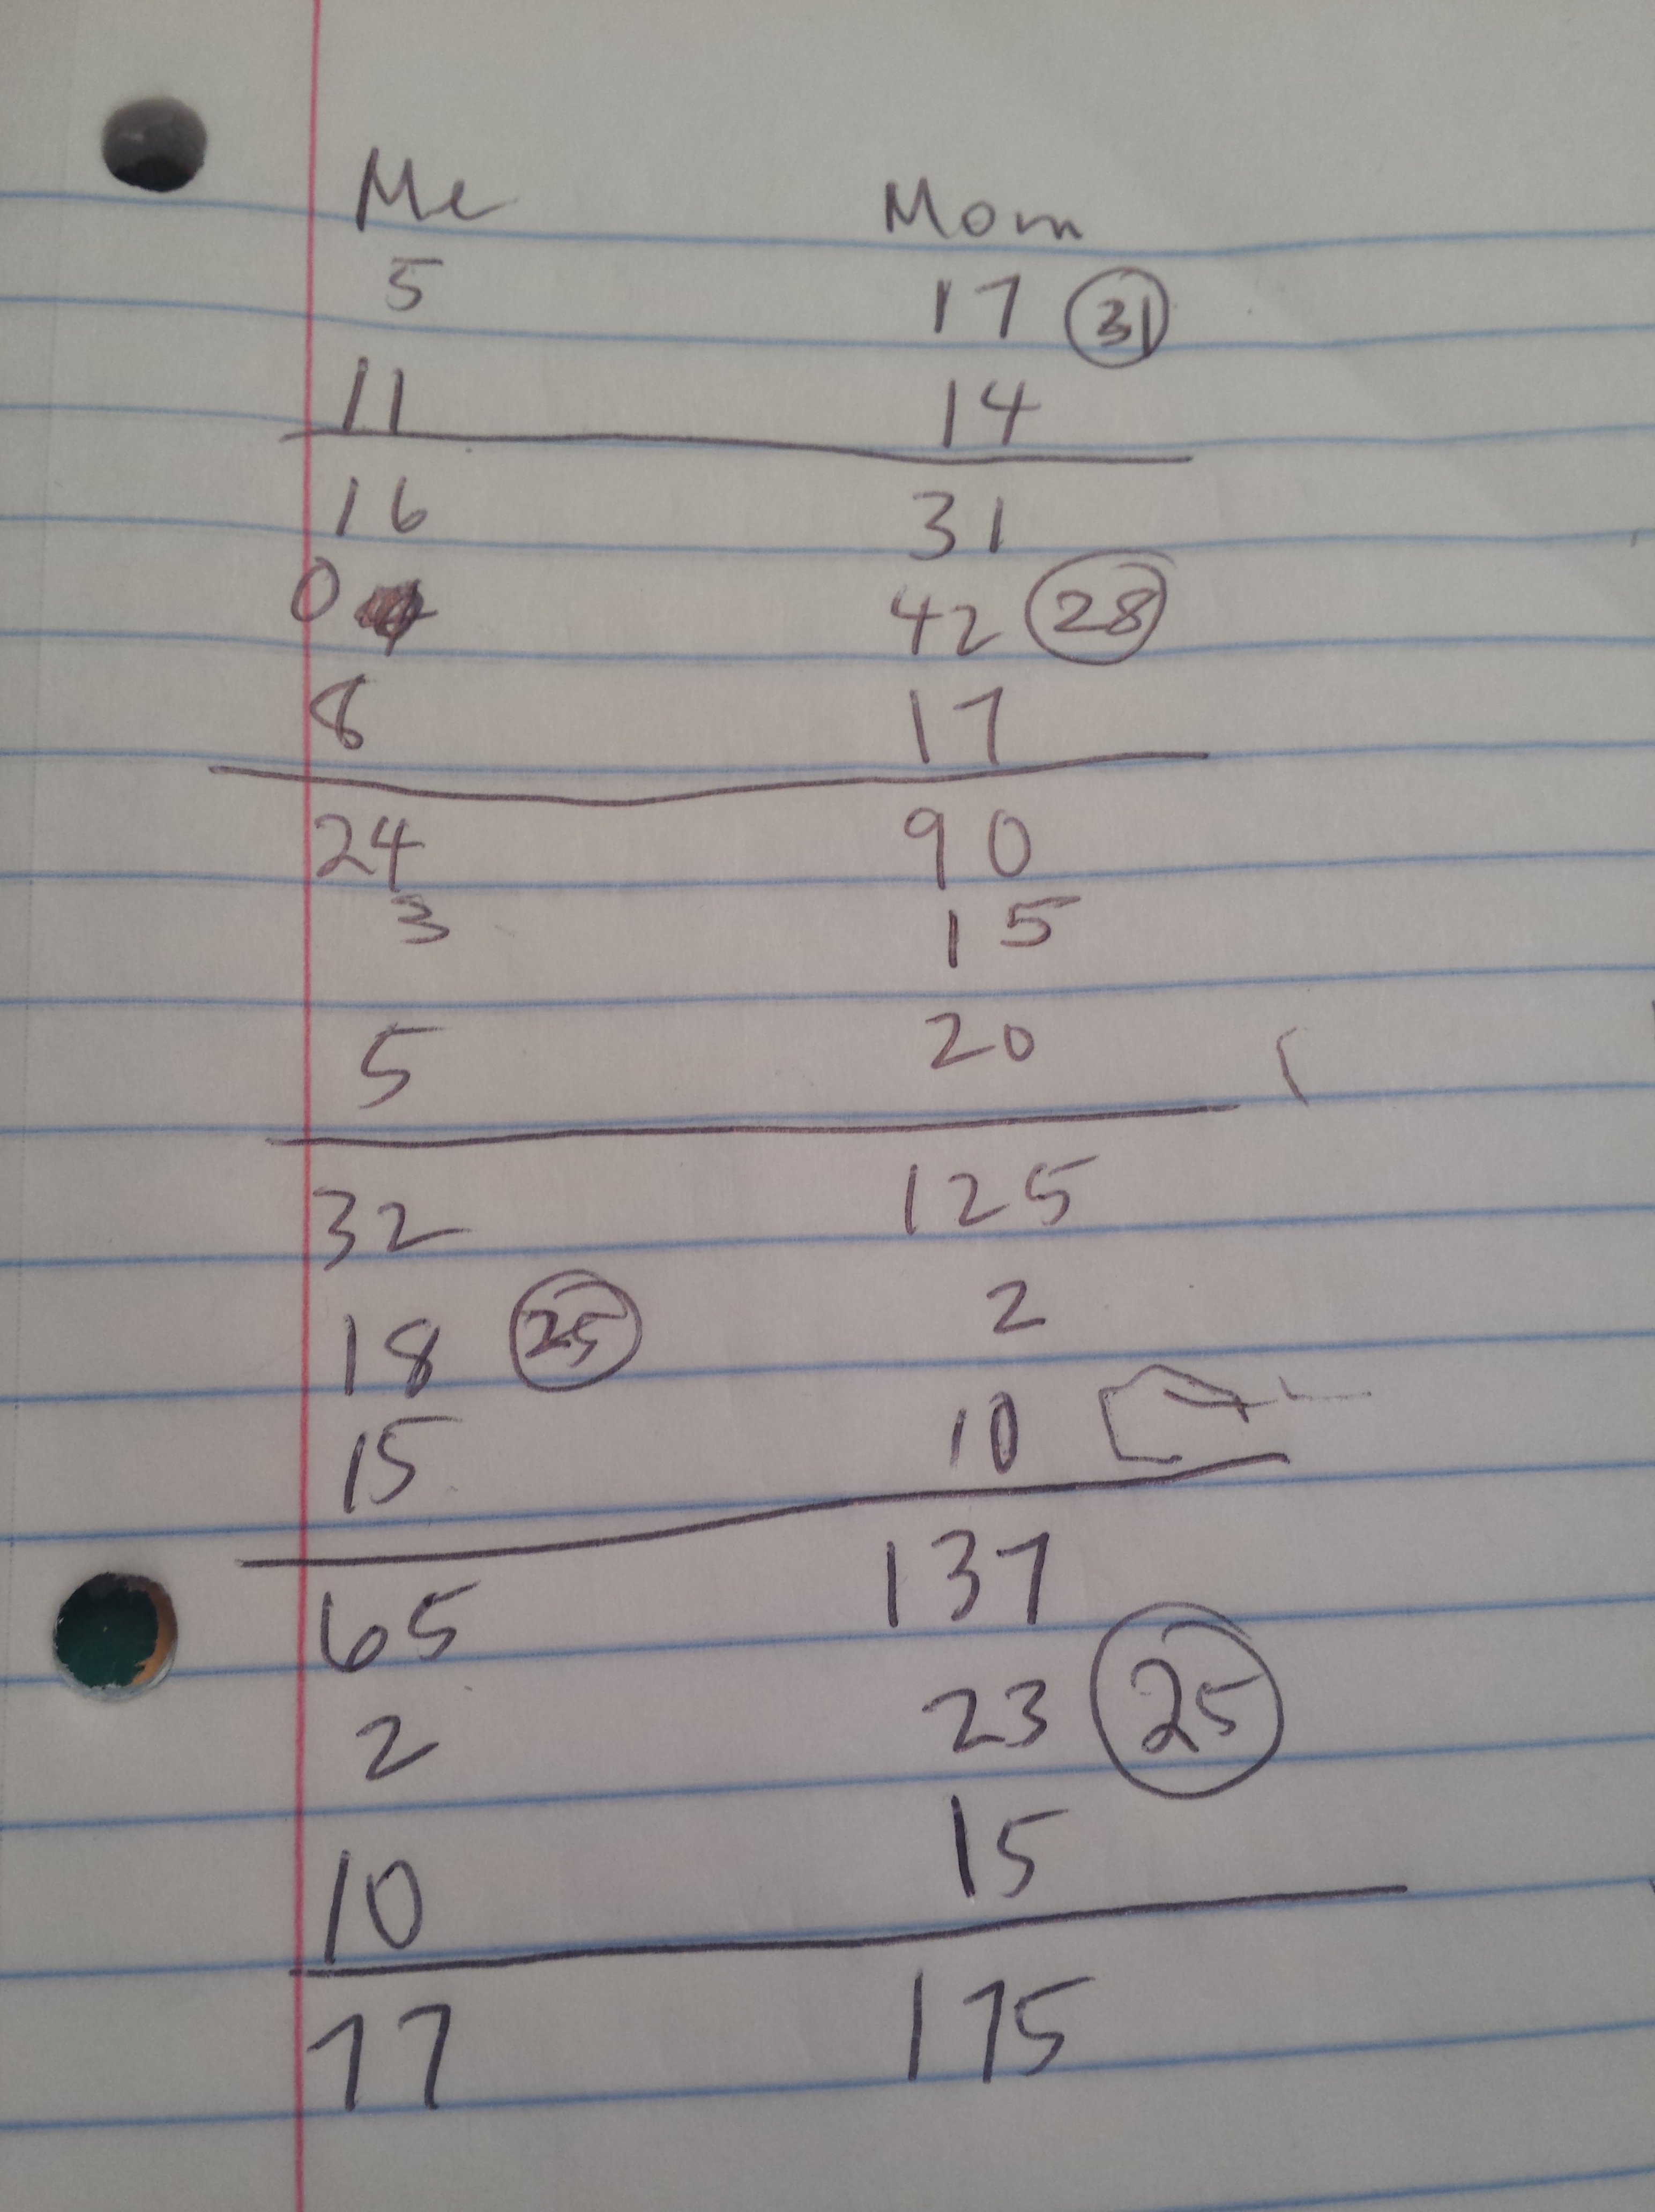 Me Mom
5 17 31
11 14
16 31
0 42 28
8 17
24 90
3 15
5 20
32 125
18 25 2
15 10
65 137
2 23 25
10 15
77 175